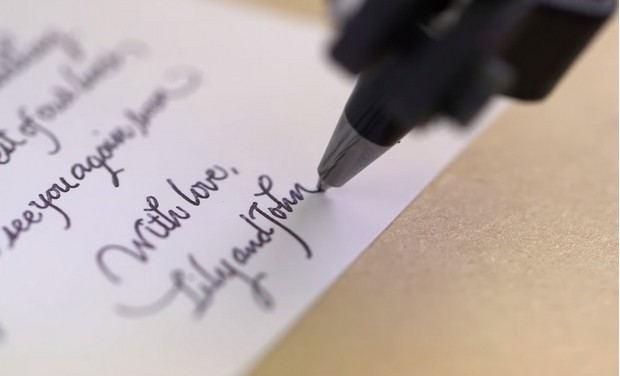 of our
see you again soon
With love,
Lily and John